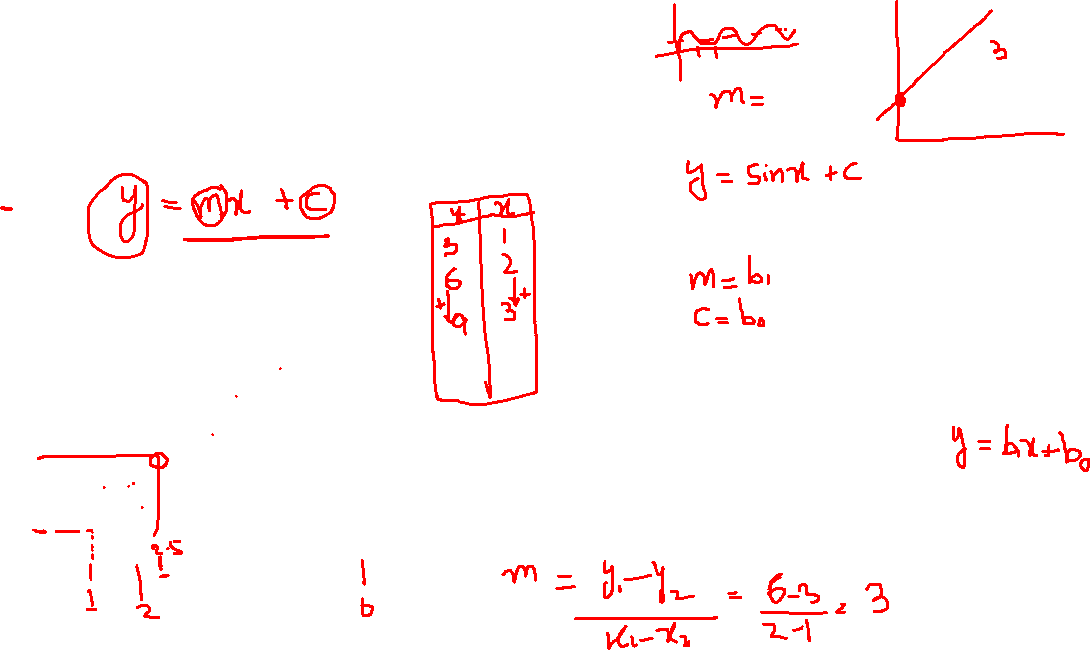 3
m =
y = sinx + c
y = mx + c
y x
3 1
6 2
+ +
9 3
m = b₁
c = b₀
y = b₁x + b₀
2.5
1 2
b
m = y₁ - y₂ / x₁ - x₂ = 6-3 / 2-1 = 3